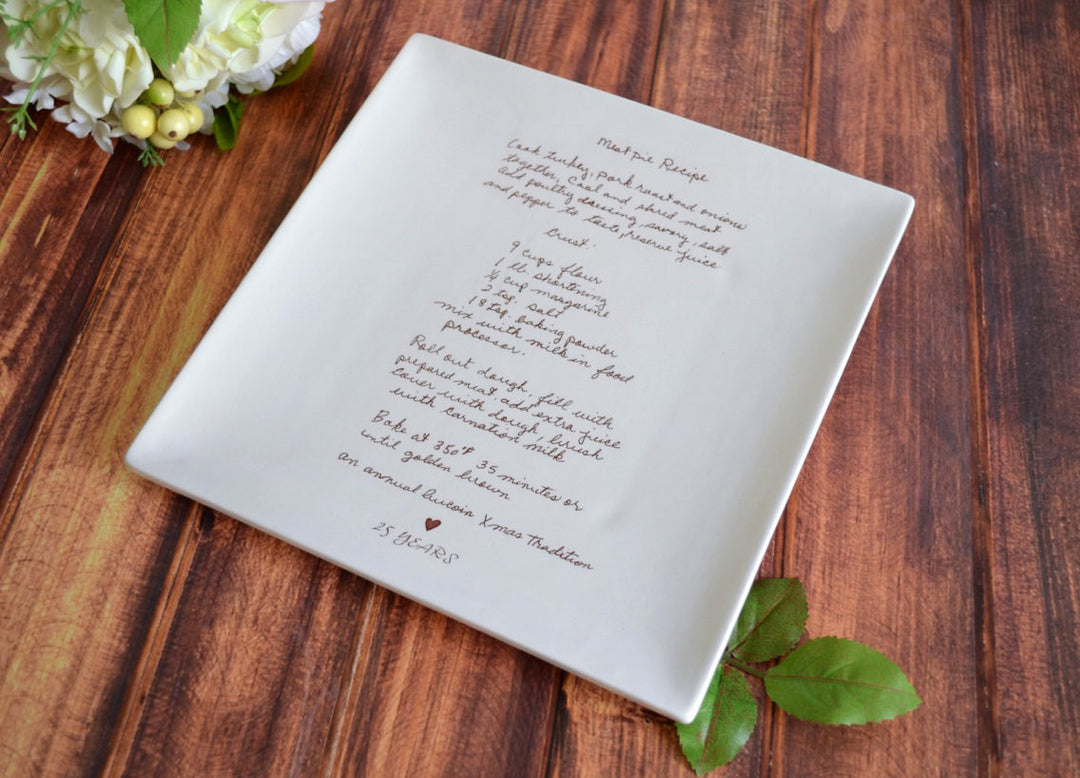 Meat pie Recipe
Cook turkey, pork roast and onions
together, cool and shred meat
add poultry dressing, savory, salt
and pepper to taste, reserve juice.
Crust:
9 cups flour
1 lb. shortening
1/4 cup margarine
2 tsp. salt
18 tsp. baking powder
mix with milk in food
processor.
Roll out dough, fill with
prepared meat add extra juice
cover with dough, brush
with carnation milk
Bake at 350°F 35 minutes or
until golden brown
an annual Xmas Tradition
25 YEARS